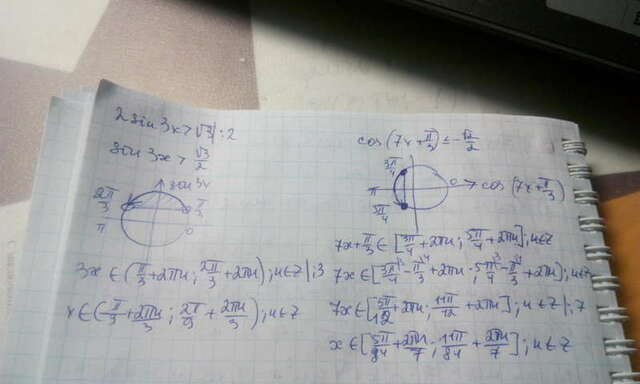 2 sin 3x > √3 | : 2
sin 3x > √3/2
sin 3x
2π/3
π/3
π
0
3x ∈ (π/3 + 2πn ; 2π/3 + 2πn) ; n ∈ Z | : 3
x ∈ (π/3 + 2πn/3 ; 2π/9 + 2πn/3) ; n ∈ Z
cos (7x + π/3) ≤ -√2/2
3π/4
π
0
cos (7x + π/3)
5π/4
7x + π/3 ∈ [3π/4 + 2πn ; 5π/4 + 2πn] ; n ∈ Z
7x ∈ [3π/4 - π/3 + 2πn ; 5π/4 - π/3 + 2πn] ; n ∈ Z
7x ∈ [5π/12 + 2πn ; 11π/12 + 2πn] ; n ∈ Z | : 7
x ∈ [5π/84 + 2πn/7 ; 11π/84 + 2πn/7] ; n ∈ Z